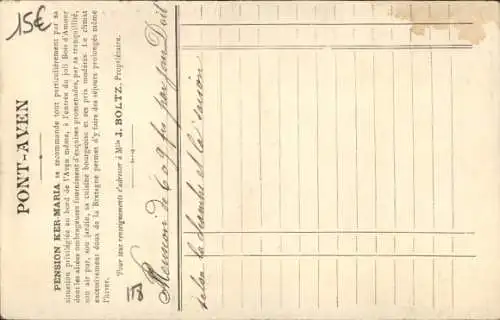 15€
PONT-AVEN
PENSION KER-MARIA se recommande tout particulièrement par sa
situation privilégiée au bord de l'Aven même, à l'entrée du joli Bois d'Amour
dont les allées ombrageuses fournissent d'exquises promenades, par sa tranquillité,
son air pur, son jardin, sa cuisine bourgeoise et ses prix modérés. Le climat
excessivement doux de la Bretagne permet d'y faire des séjours prolongés même
l'hiver.
Pour tous renseignements s'adresser à Mlle J. BOLTZ, Propriétaire.
Pension de 6 à 9 frs par jour
selon la chambre et la saison